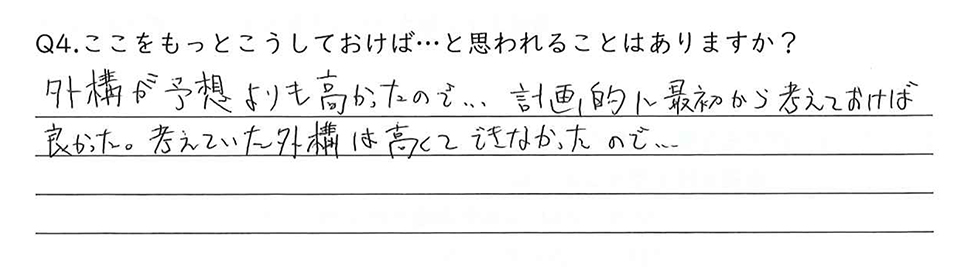 Q4.ここをもっとこうしておけば…と思われることはありますか？
外構が予想よりも高かったので… 計画的に最初から考えておけば
良かった。考えていた外構は高くてできなかったので…